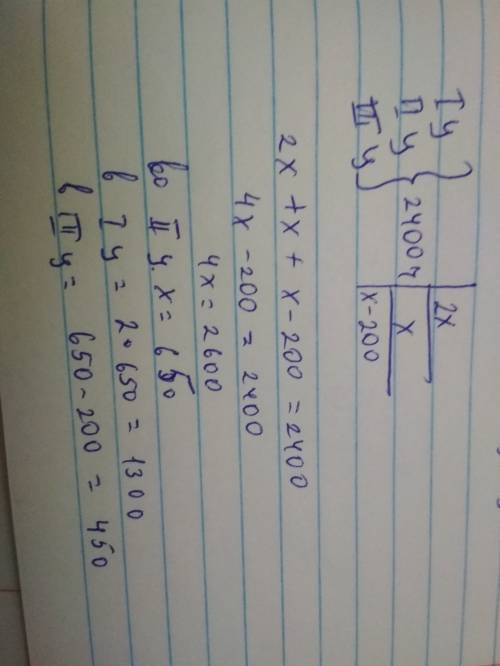 I у } 2400 ч | 2x
II у | x
III у | x-200
2x + x + x - 200 = 2400
4x - 200 = 2400
4x = 2600
во II у. x = 650
в I у = 2 • 650 = 1300
в III у = 650 - 200 = 450